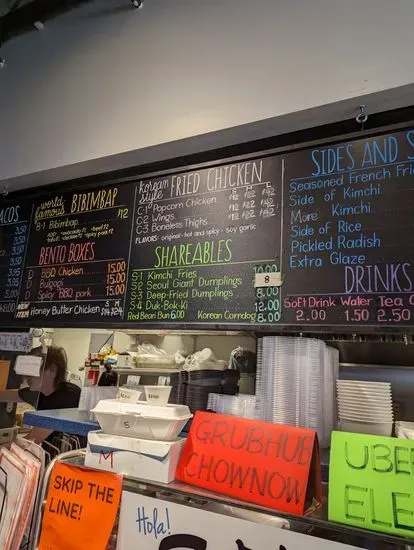 ACOS
3.50
3.50
3.50
3.50
world
famous BIBIMBAP
B-1 Bibimbap 12
BENTO BOXES
BBQ Chicken 15.00
Bulgogi 15.00
Spicy BBQ pork 15.00
Honey Butter Chicken
Korean
style FRIED CHICKEN
S M L
C-1 Popcorn Chicken
C-2 Wings
C-3 Boneless Thighs
FLAVORS: original · hot and spicy · soy garlic
SHAREABLES
S1 Kimchi Fries 10.00
S2 Seoul Giant Dumplings 8
S3 Deep-Fried Dumplings 8.00
S4 Duk-Bok-ki 12.00
Red Bean Bun 6.00 Korean Corndog 8.00
SIDES AND S
Seasoned French Fri
Side of Kimchi
More Kimchi
Side of Rice
Pickled Radish
Extra Glaze
DRINKS
Soft Drink Water Tea C
2.00 1.50 2.50
SKIP THE
LINE!
Hola!
M
S
GRUBHUB
CHOWNOW
UBE
ELE